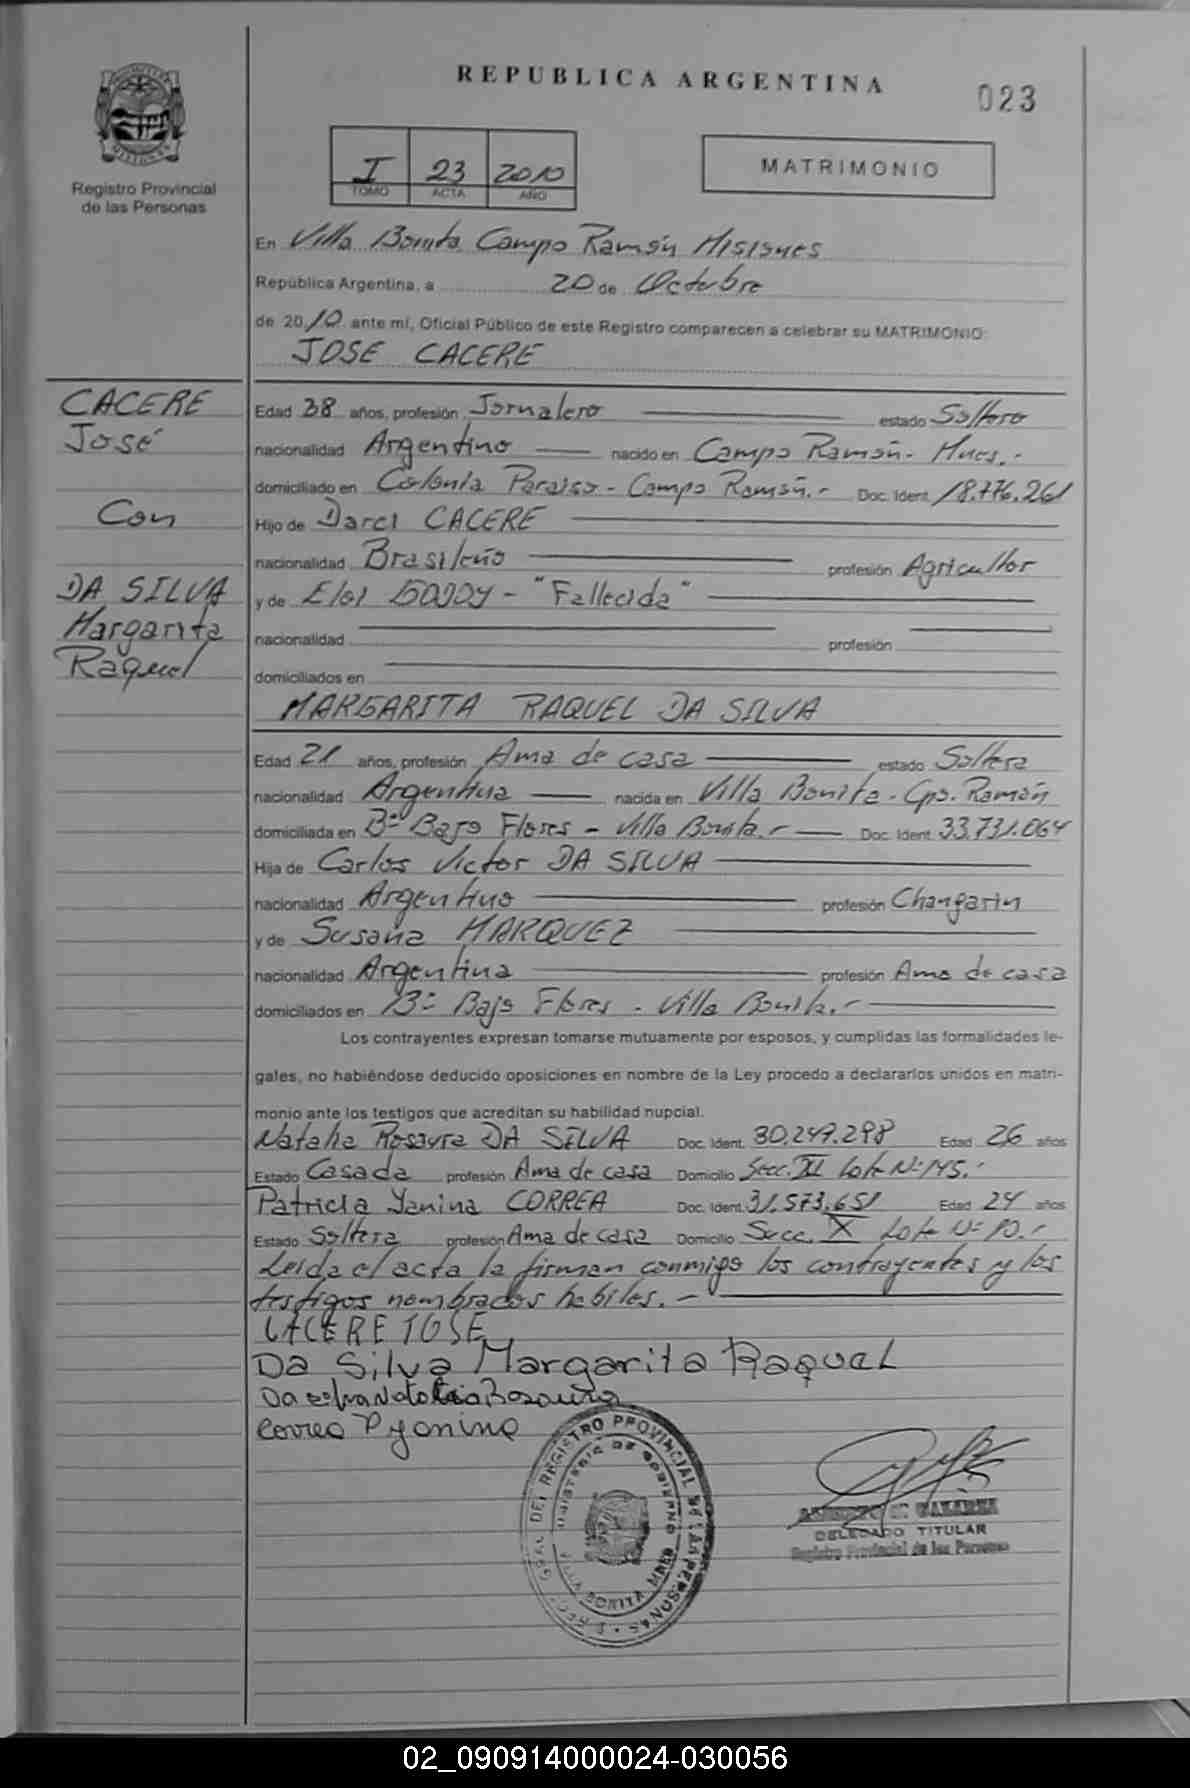 REPUBLICA ARGENTINA
023
Registro Provincial
de las Personas
I 23 2010
TOMO ACTA AÑO
MATRIMONIO
En Villa Bonita Campo Ramón Misiones
República Argentina, a 20 de Octubre
de 2010 ante mí, Oficial Público de este Registro comparecen a celebrar su MATRIMONIO:
JOSE CACERE
CACERE
José
Con
DA SILVA
Margarita
Raquel
Edad 38 años, profesión Jornalero estado Soltero
nacionalidad Argentino nacido en Campo Ramón - Mnes.-
domiciliado en Colonia Paraiso - Campo Ramón.- Doc. Ident. 18.776.261
Hijo de Darci CACERE
nacionalidad Brasileño profesión Agricultor
y de Eloi GODOY - "Fallecida"
nacionalidad profesión
domiciliados en
MARGARITA RAQUEL DA SILVA
Edad 21 años, profesión Ama de casa estado Soltera
nacionalidad Argentina nacida en Villa Bonita - Cpo. Ramón
domiciliada en Bº Bajo Flores - Villa Bonita.- Doc. Ident. 33.731.064
Hija de Carlos Victor DA SILVA
nacionalidad Argentino profesión Changarin
y de Susana MARQUEZ
nacionalidad Argentina profesión Ama de casa
domiciliados en Bº Bajo Flores - Villa Bonita.-
Los contrayentes expresan tomarse mutuamente por esposos, y cumplidas las formalidades le-
gales, no habiéndose deducido oposiciones en nombre de la Ley procedo a declararlos unidos en matri-
monio ante los testigos que acreditan su habilidad nupcial.
Natalia Rosaura DA SILVA Doc. Ident. 30.249.298 Edad 26 años
Estado Casada profesión Ama de casa Domicilio Secc. Lote Nº 145.-
Patricia Yanina CORREA Doc. Ident. 31.573.651 Edad 24 años
Estado Soltera profesión Ama de casa Domicilio Secc. X Lote Nº 10.-
Leida el acta la firman conmigo los contrayentes y los
testigos nombrados habiles.-
CACERE JOSE
Da Silva Margarita Raquel
Da silva Natalia Rosaura
Correa P yanina
REGISTRO PROVINCIAL DE LAS PERSONAS
MINISTERIO DE GOBIERNO
VILLA BONITA MNES
DELEGADO TITULAR
Registro Provincial de las Personas
02_090914000024-030056